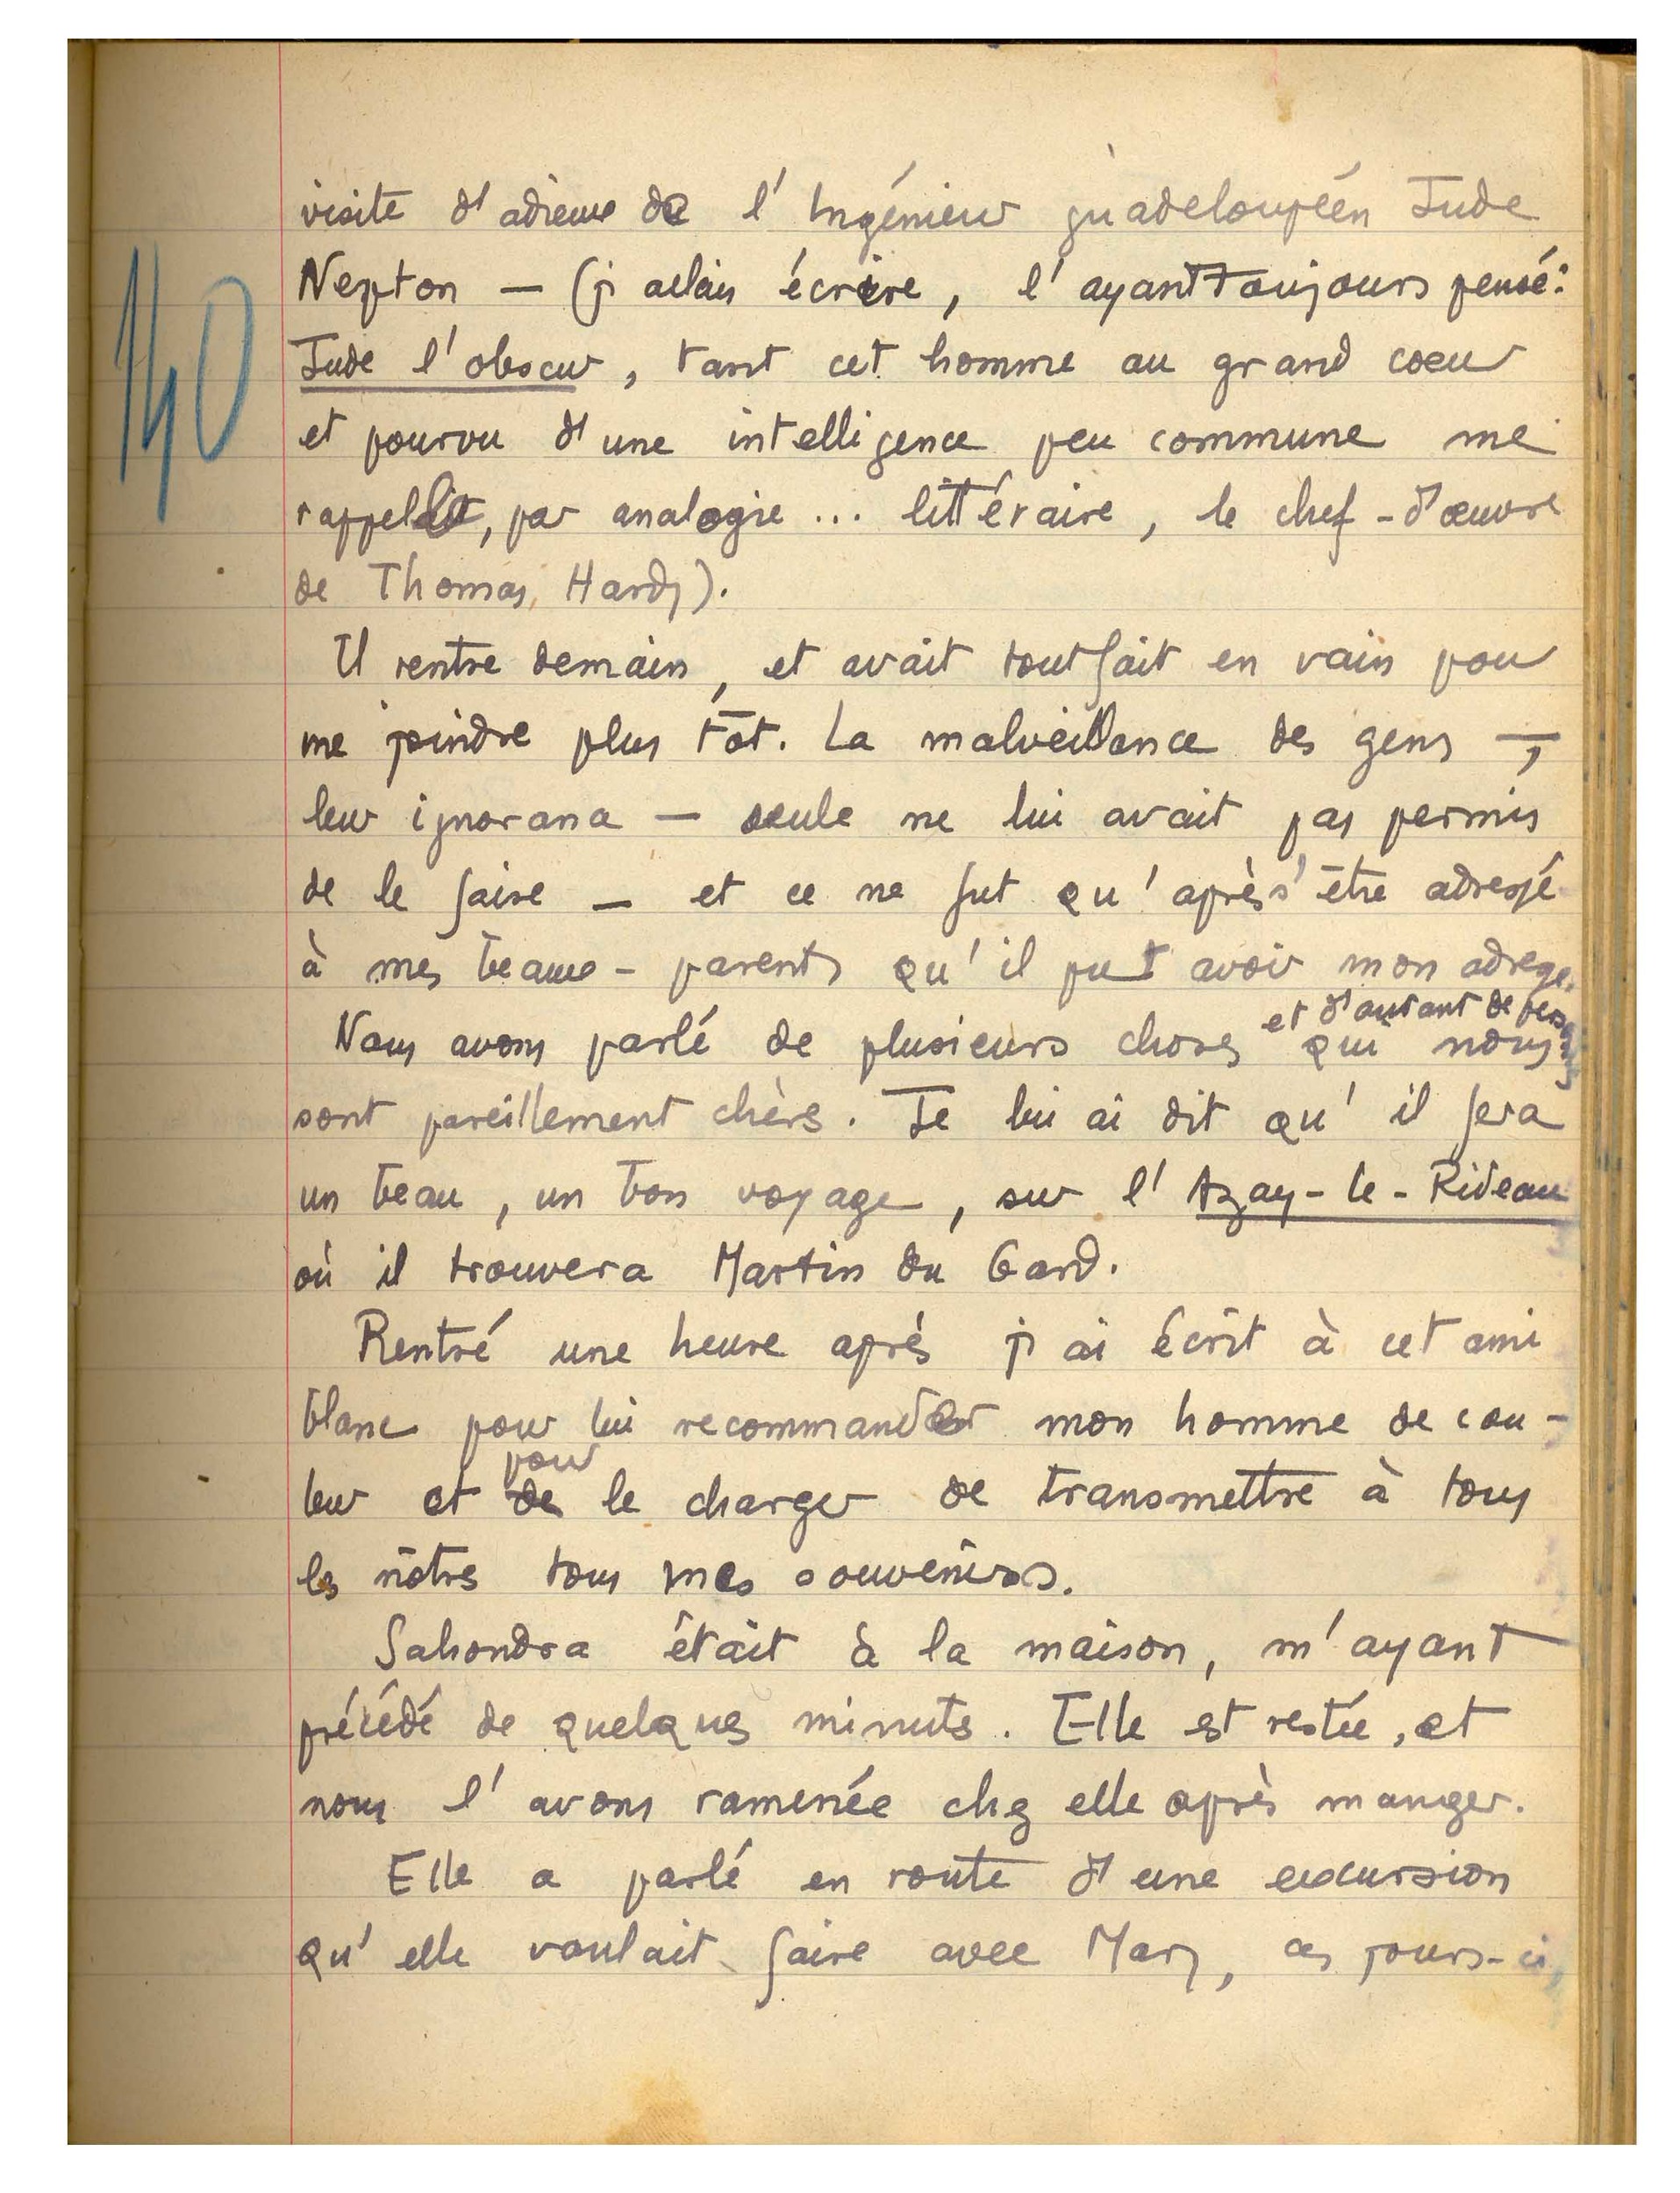 140
visite d'adieux de l'Ingénieur guadeloupéen Jude
Nepton — (j'allais écrire, l'ayant toujours pensé :
Jude l'obscur, tant cet homme au grand coeur
et pourvu d'une intelligence peu commune me
rappelait, par analogie ... littéraire, le chef-d'œuvre
de Thomas Hardy).
Il rentre demain, et avait tout fait en vain pour
me joindre plus tôt. La malveillance des gens —,
leur ignorance — seule ne lui avait pas permis
de le faire — et ce ne fut qu'après s'être adressé
à mes beaux-parents qu'il put avoir mon adresse.
et d'autant de personnes
Nous avons parlé de plusieurs choses qui nous
sont pareillement chères. Je lui ai dit qu'il fera
un beau, un bon voyage, sur l'Azay-le-Rideau
où il trouvera Martin du Gard.
Rentré une heure après j'ai écrit à cet ami
blanc pour lui recommander mon homme de cou-
pour
leur et de le charger de transmettre à tous
les nôtres tous mes souvenirs.
Sahondra était à la maison, m'ayant
précédé de quelques minutes. Elle est restée, et
nous l'avons ramenée chez elle après manger.
Elle a parlé en route d'une excursion
qu'elle voulait faire avec Mary, ces jours-ci,